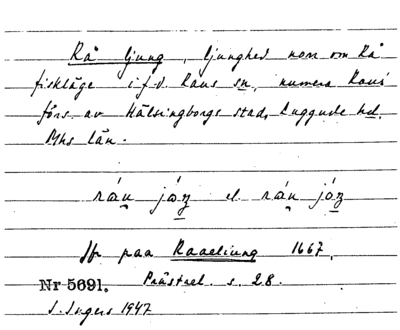 Rå ljung, ljunghed norr om Rå
fiskläge i f.d. Raus sn, numera Raus
förs. av Hälsingborgs stad, Luggude hd.
Mhs län.
råu jåz el råu jåz
Jfr paa Raaeliung 1667.
Nr 5691. Prästrel. s. 28.
S. Ingers 1947